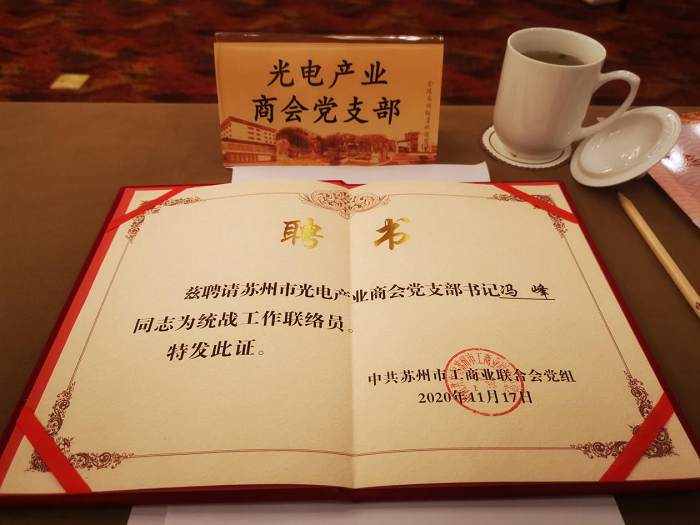 光电产业
商会党支部
聘 书
兹聘请苏州市光电产业商会党支部书记冯 峰
同志为统战工作联络员。
特发此证。
中共苏州市工商业联合会党组
2020年11月17日